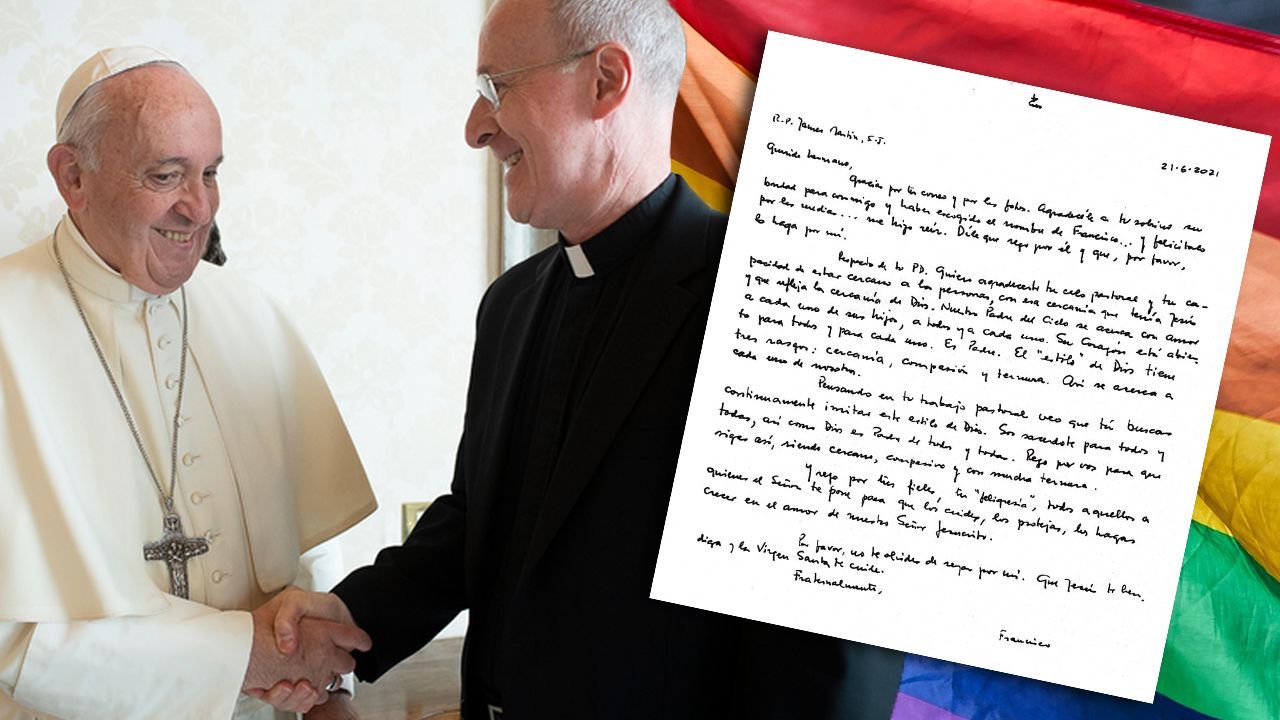 R.P. James Martin, S.J.
21.6.2021
Querido hermano,
Gracias por tu correo y por las fotos. Agradecele a tu sobrino su
bondad para conmigo y haber escogido el nombre de Francisco... y felicitalo
por las medias... me hizo reir. Dile que rezo por él y que, por favor,
lo haga por mí.
Respecto de tu PD. Quiero agradecerte tu celo pastoral y tu ca-
pacidad de estar cercano a las personas, con esa cercanía que tenía Jesús
y que refleja la cercanía de Dios. Nuestro Padre del Cielo se acerca con amor
a cada uno de sus hijos, a todos y a cada uno. Su Corazón está abier-
to para todos y para cada uno. Es Padre. El "estilo" de Dios tiene
tres rasgos: cercanía, compasión y ternura. Así se acerca a
cada uno de nosotros.
Pensando en tu trabajo pastoral veo que tú buscas
continuamente imitar este estilo de Dios. Sos sacerdote para todos y
todas, así como Dios es Padre de todos y todas. Rezo por vos para que
sigas así, siendo cercano, compasivo y con mucha ternura.
Y rezo por tus fieles, tu "feligresía", todos aquellos a
quienes el Señor te pone para que los cuides, los protejas, los hagas
crecer en el amor de nuestro Señor Jesucristo.
Por favor, no te olvides de rezar por mí. Que Jesús te ben-
diga y la Virgen Santa te cuide.
Fraternalmente,
Francisco